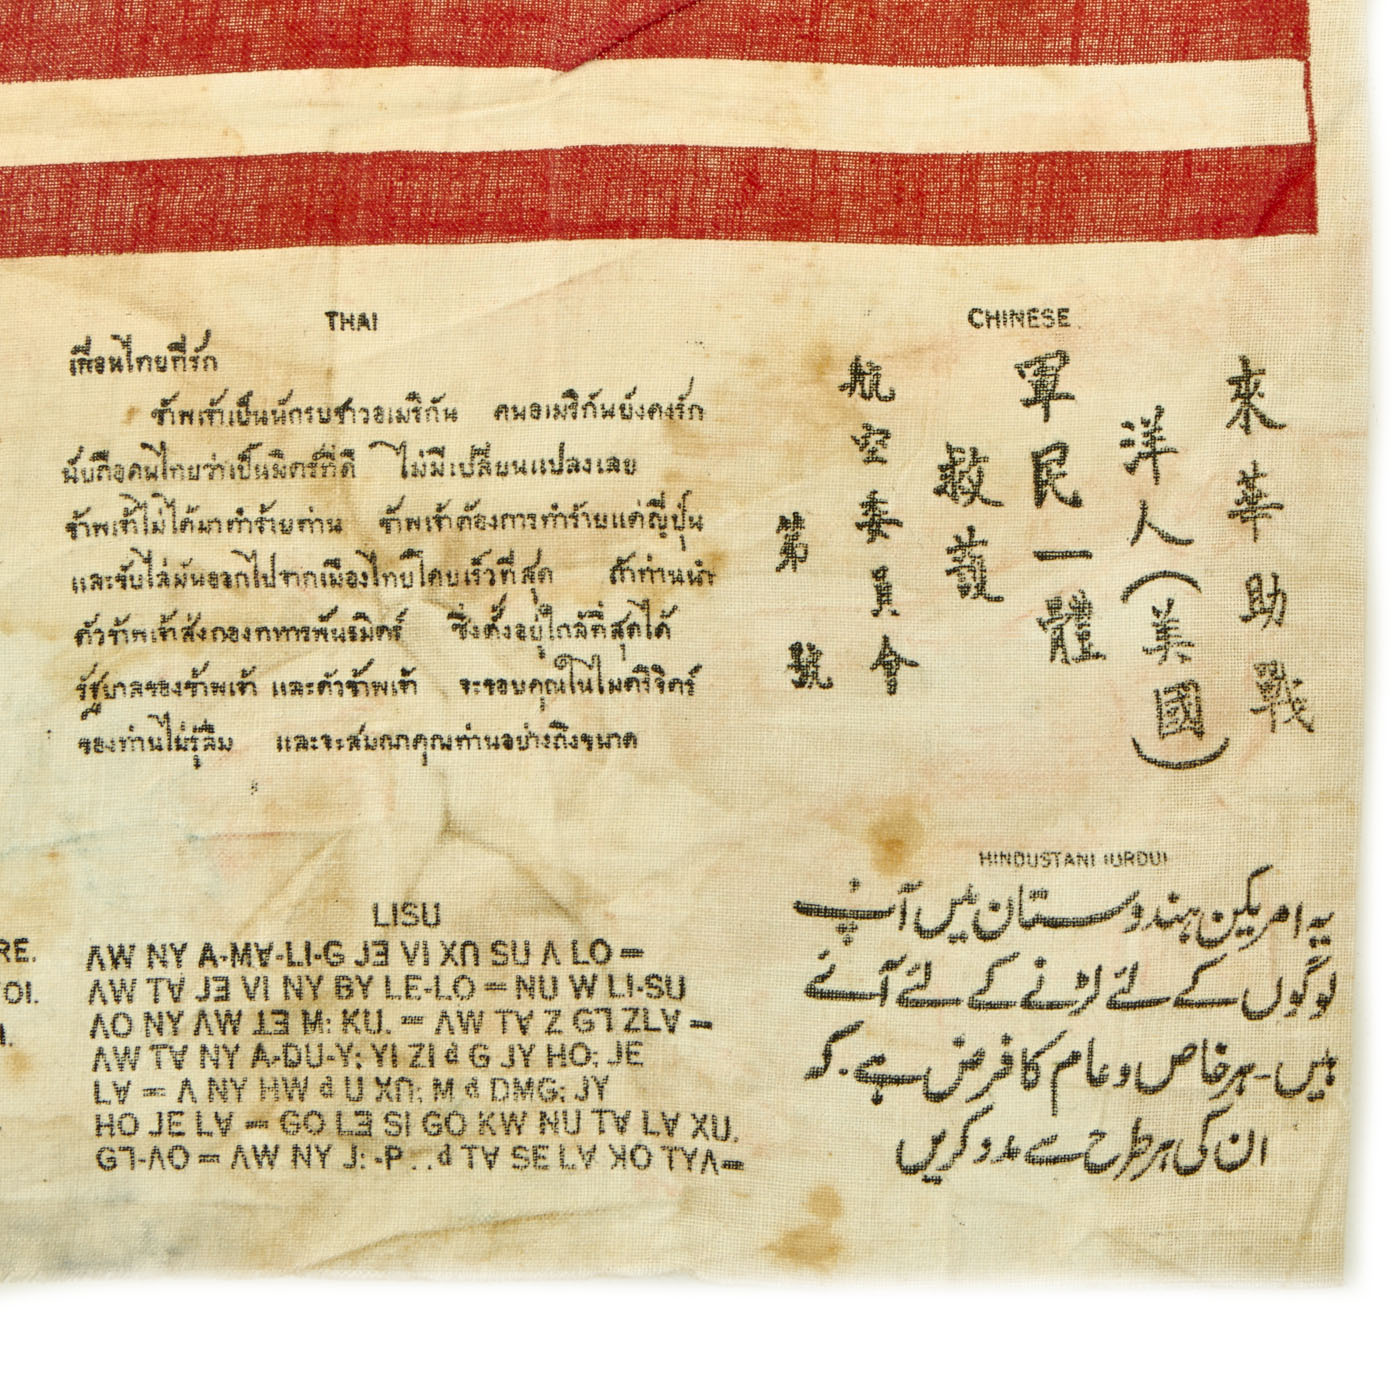 THAI
เพื่อนไทยที่รัก
ข้าพเจ้าเป็นนักรบชาวอเมริกัน คนอเมริกันยังคงรัก
นับถือคนไทยว่าเป็นมิตร์ที่ดี ไม่มีเปลี่ยนแปลงเลย
ข้าพเจ้าไม่ได้มาทำร้ายท่าน ข้าพเจ้าต้องการทำร้ายแต่ญี่ปุ่น
และขับไล่มันออกไปจากเมืองไทยโดยเร็วที่สุด ถ้าท่านนำ
ตัวข้าพเจ้าส่งกองทหารพันธมิตร์ ซึ่งตั้งอยู่ใกล้ที่สุดได้
รัฐบาลของข้าพเจ้า และตัวข้าพเจ้า จะขอบคุณในไมตรีจิตร์
ของท่านไม่รู้ลืม และจะสมณาคุณท่านอย่างถึงขนาด
CHINESE
來華助戰
洋人(美國)
軍民一體
救護
航空委員會
第 號
HINDUSTANI (URDU)
یہ امریکن ہندوستان میں آپ
لوگوں کے لئے لڑنے کے لئے آئے
ہیں۔ ہر خاص و عام کا فرض ہے۔ کہ
ان کی ہر طرح سے مدد کریں
RE.
OI.
LISU
ꓥW NY A-Mꓯ-LI-G JƎ VI XՈ SU ꓥ LO =
ꓥW Tꓯ JƎ VI NY BY LE-LO = NU W LI-SU
ꓥO NY ꓥW ꓕƎ M: KU. = ꓥW Tꓯ Z GꓶZLꓯ =
ꓥW Tꓯ NY A-DU-Y; YI ZI d G JY HO; JE
Lꓯ = ꓥ NY HW d U XՈ; M d DMG; JY
HO JE Lꓯ = GO LƎ SI GO KW NU Tꓯ Lꓯ XU.
Gꓶ-ꓥO = ꓥW NY J: -P . . d Tꓯ SE Lꓯ ꓘO TYꓥ=